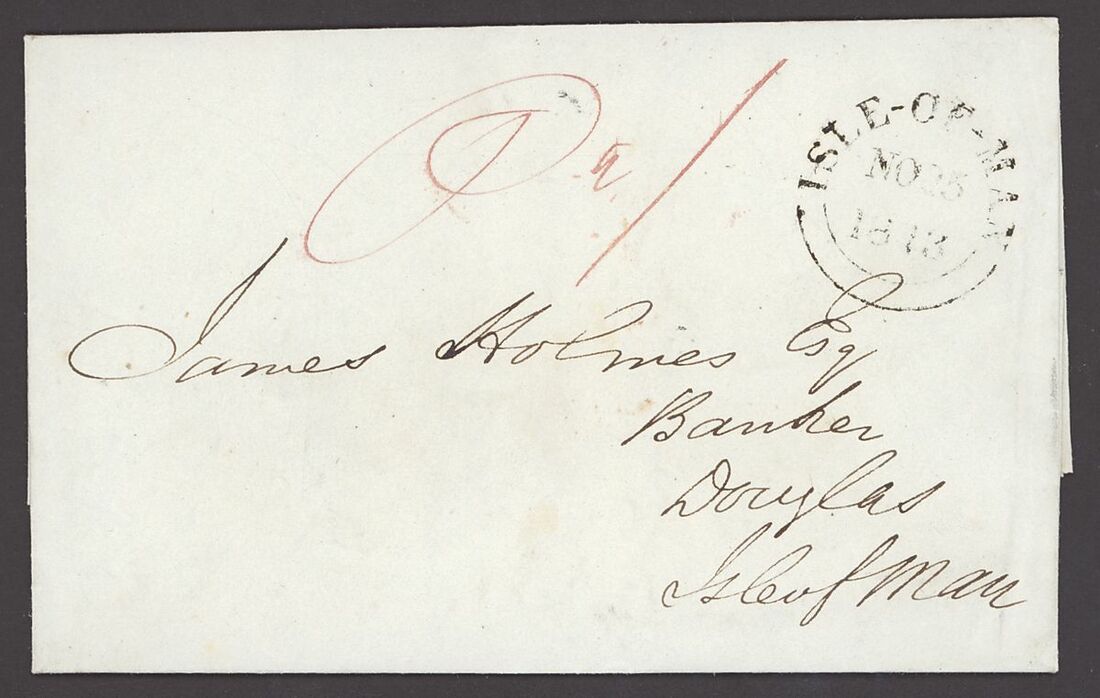 Pd 1/
ISLE-OF-MAN
NO 25
1843
James Holmes Esq
Banker
Douglas
Isle of Man